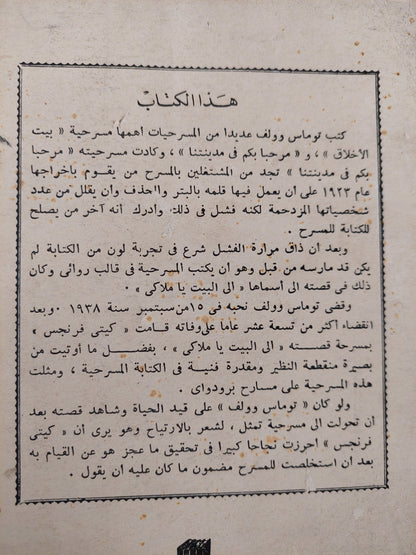 هذا الكتاب
كتب توماس وولف عديدا من المسرحيات اهمها مسرحية « بيت
الأخلاق » ، و « مرحبا بكم فى مدينتنا » ، وكادت مسرحيته « مرحبا
بكم فى مدينتنا » تجد من المشتغلين بالمسرح من يقوم بأخراجها
عام ١٩٢٣ على أن يعمل فيها قلمه بالبتر والحذف وأن يقلل من عدد
شخصياتها المزدحمة لكنه فشل فى ذلك وأدرك أنه آخر من يصلح
للكتابة للمسرح .
وبعد أن ذاق مرارة الفشل شرع فى تجربة لون من الكتابة لم
يكن قد مارسه من قبل وهو أن يكتب المسرحية فى قالب روائى وكان
ذلك فى قصته التى أسماها « الى البيت يا ملاكى » .
وقضى توماس وولف نحبه فى ١٥ من سبتمبر سنة ١٩٣٨ ٠ وبعد
انقضاء أكثر من تسعة عشر عاما على وفاته قامت « كيتى فرنجس »
بمسرحة قصته « الى البيت يا ملاكى » ، بفضل ما أوتيت من
بصيرة منقطعة النظير ومقدرة فنية فى الكتابة المسرحية ، ومثلت
هذه المسرحية على مسارح برودواى .
ولو كان « توماس وولف » على قيد الحياة وشاهد قصته بعد
أن تحولت الى مسرحية تمثل ، لشعر بالارتياح وهو يرى أن « كيتى
فرنجس » احرزت نجاحا كبيرا فى تحقيق ما عجز هو عن القيام به
بعد أن استخلصت للمسرح مضمون ما كان عليه أن يقول .